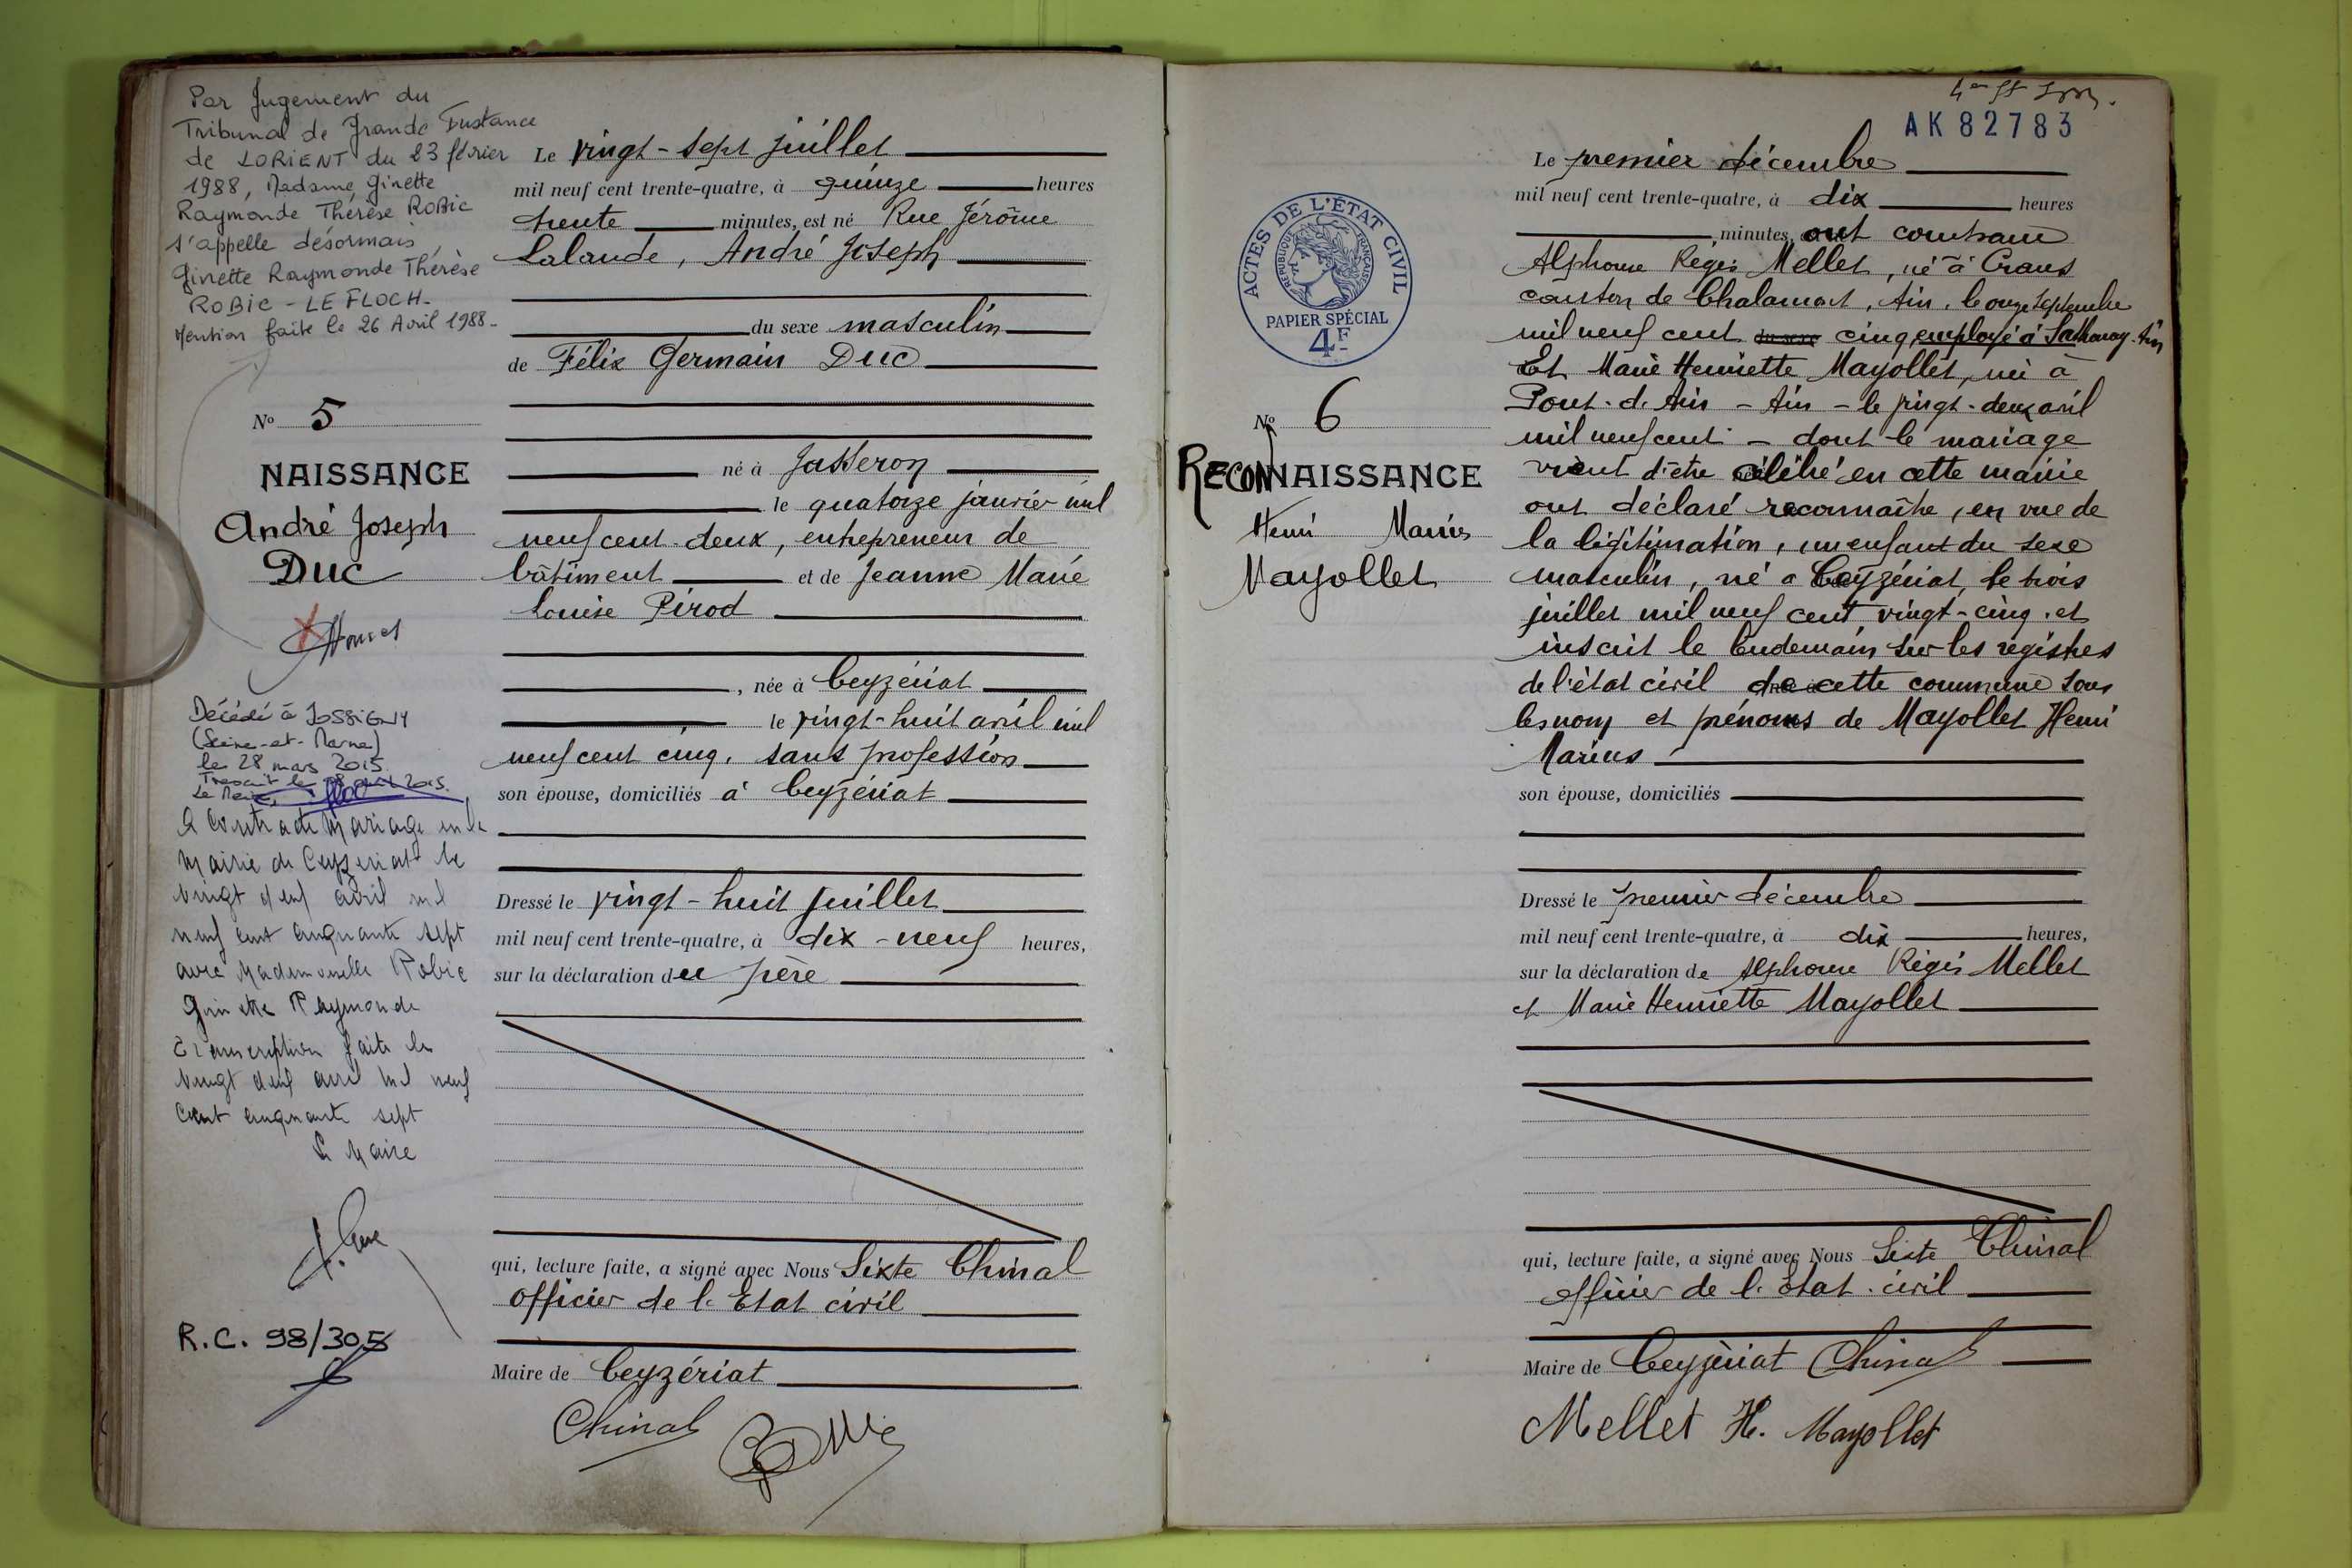 Par Jugement du
Tribunal de Grande Instance
de LORIENT du 23 février
1988, Madame Ginette
Raymonde Thérèse ROBIC
s'appelle désormais
Ginette Raymonde Thérèse
ROBIC - LE FLOCH.
Mention faite le 26 Avril 1988.
N° 5
NAISSANCE
André Joseph
Duc
Décédé à JOSSIGNY
(Seine-et-Marne)
le 28 mars 2015.
Transcrit le 2015.
Le Maire,
A contracté Mariage en la
Mairie de Ceyzeriat le
vingt neuf avril mil
neuf cent cinquante sept
avec Mademoiselle Robic
Ginette Raymonde
Transcription faite le
vingt neuf avril mil neuf
cent cinquante sept
Le Maire
R.C. 98/305
Le vingt-sept juillet
mil neuf cent trente-quatre, à quinze heures
trente minutes, est né Rue Jérôme
Lalande, André Joseph
du sexe masculin
de Félix Germain Duc
né à Jasseron
le quatorze janvier mil
neuf cent deux, entrepreneur de
bâtiment et de Jeanne Marie
Louise Pirod
, née à Ceyzériat
le vingt-huit avril mil
neuf cent cinq, sans profession
son épouse, domiciliés à Ceyzériat
Dressé le vingt-huit juillet
mil neuf cent trente-quatre, à dix-neuf heures,
sur la déclaration du père
qui, lecture faite, a signé avec Nous Sixte Chinal
officier de l'Etat civil
Maire de Ceyzériat
Chinal
AK 82783
ACTES DE L'ÉTAT CIVIL
RÉPUBLIQUE FRANÇAISE
PAPIER SPÉCIAL
4F
N° 6
RECONNAISSANCE
Henri Marius
Mayollet
Le premier décembre
mil neuf cent trente-quatre, à dix heures
minutes, ont comparu
Alphonse Régis Mellet, né à Crans
canton de Chalamont, Ain, le onze septembre
mil neuf cent du sexe cinq, employé à Sathonay. Ain
Et Marie Henriette Mayollet, née à
Pont-d'Ain - Ain - le vingt-deux avril
mil neuf cent - dont le mariage
vient d'être célébré en cette mairie
ont déclaré reconnaître, en vue de
la légitimation, un enfant du sexe
masculin, né à Ceyzériat, le trois
juillet mil neuf cent vingt-cinq, et
inscrit le lendemain sur les registres
de l'état civil de cette commune sous
les nom et prénoms de Mayollet Henri
Marius
son épouse, domiciliés
Dressé le premier décembre
mil neuf cent trente-quatre, à dix heures,
sur la déclaration de Alphonse Régis Mellet
et Marie Henriette Mayollet
qui, lecture faite, a signé avec Nous Sixte Chinal
officier de l'état-civil
Maire de Ceyzériat Chinal
Mellet H. Mayollet